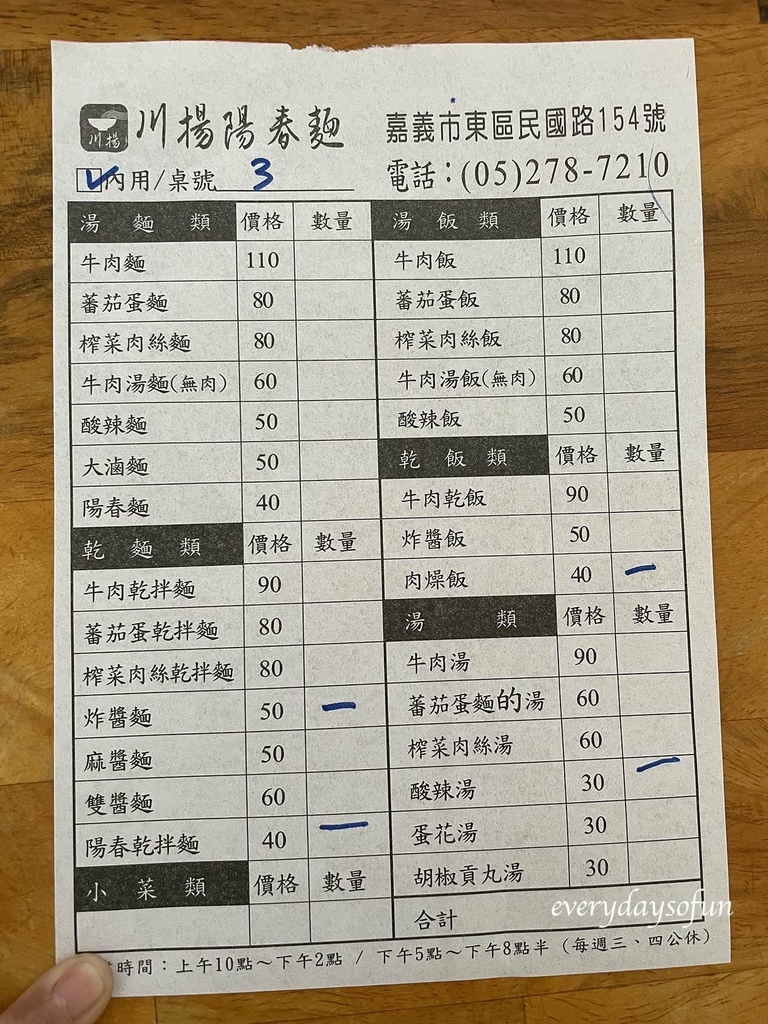 川揚
川揚陽春麵
嘉義市東區民國路154號
內用/桌號 3
電話：(05)278-7210
湯麵類 價格 數量
牛肉麵 110
蕃茄蛋麵 80
榨菜肉絲麵 80
牛肉湯麵(無肉) 60
酸辣麵 50
大滷麵 50
陽春麵 40
乾麵類 價格 數量
牛肉乾拌麵 90
蕃茄蛋乾拌麵 80
榨菜肉絲乾拌麵 80
炸醬麵 50 一
麻醬麵 50
雙醬麵 60
陽春乾拌麵 40 一
小菜類 價格 數量
湯飯類 價格 數量
牛肉飯 110
蕃茄蛋飯 80
榨菜肉絲飯 80
牛肉湯飯(無肉) 60
酸辣飯 50
乾飯類 價格 數量
牛肉乾飯 90
炸醬飯 50
肉燥飯 40 一
湯類 價格 數量
牛肉湯 90
蕃茄蛋麵的湯 60
榨菜肉絲湯 60
酸辣湯 30 一
蛋花湯 30
胡椒貢丸湯 30
合計
時間：上午10點～下午2點 / 下午5點～下午8點半 (每週三、四公休)
everydaysofun